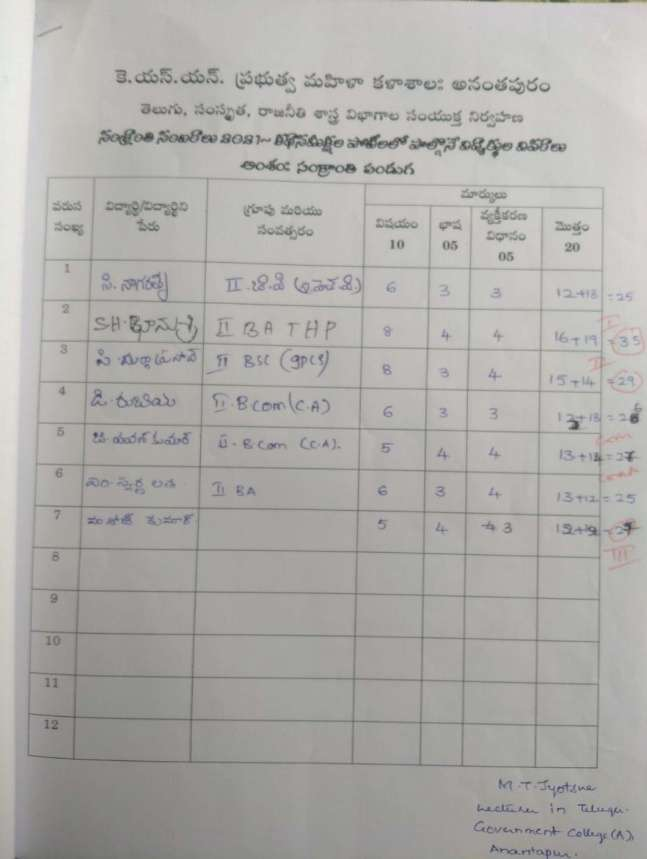 కె.యస్.యన్. ప్రభుత్వ మహిళా కళాశాల: అనంతపురం
తెలుగు, సంస్కృత, రాజనీతి శాస్త్ర విభాగాల సంయుక్త నిర్వహణ
సంక్రాంతి సంబరాలు 2021~ పోటీలలో పాల్గొనే విద్యార్థుల వివరాలు
అంశం: సంక్రాంతి పండుగ
వరుస సంఖ్య విద్యార్థి/విద్యార్థిని పేరు గ్రూపు మరియు సంవత్సరం మార్కులు
విషయం 10 భాష 05 వ్యక్తీకరణ విధానం 05 మొత్తం 20
1 సి. నాగలక్ష్మి II 6 3 3 12+13 =25
2 S.H. భానుశ్రీ II BA THP 8 4 4 16+19 =35 I
3 II BSC 8 3 4 15+14 =29 II
4 డి. రుబియ II. B com (C.A) 6 3 3 +13 =
5 పవన్ కుమార్ II. B com (C.A). 5 4 4 13+
6 ఎం. స్వర్ణ లత II BA 6 3 4 13+12 =25
7 కుమార్ 5 4 3 III
8
9
10
11
12
M.T. Jyotsna
Lecturer in Telugu.
Government College (A),
Anantapur.